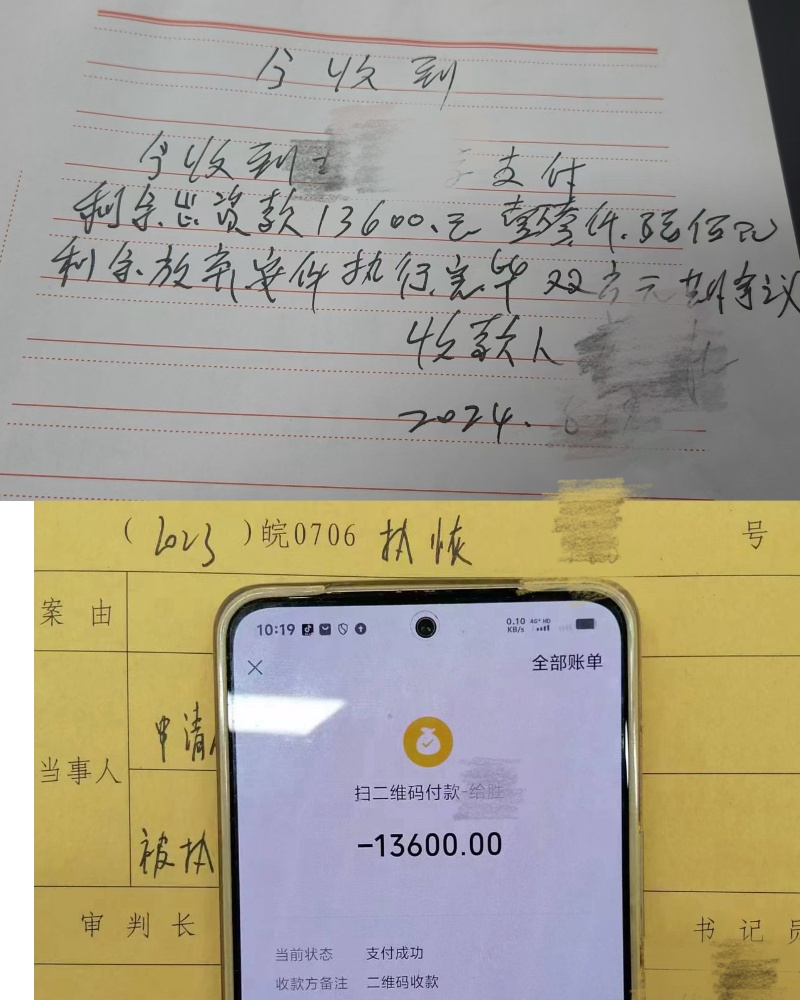 今收到
今收到 支付
剩余出资款13600.元 壹万 仟.陆佰元
剩余放弃案件执行完毕 双方无 争议
收款人
2024.
(2023)皖0706 执恢 号
案由
10:19 0.10 KB/s 4G+ HD
全部账单
当事人
申请
扫二维码付款-给胜
-13600.00
被执
审判长
书记员
当前状态 支付成功
收款方备注 二维码收款